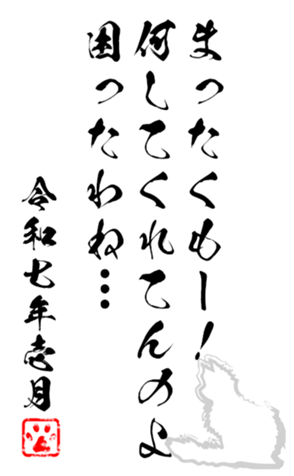 まったくもー！
何してくれてんのよ
困ったわね…
令和七年壱月